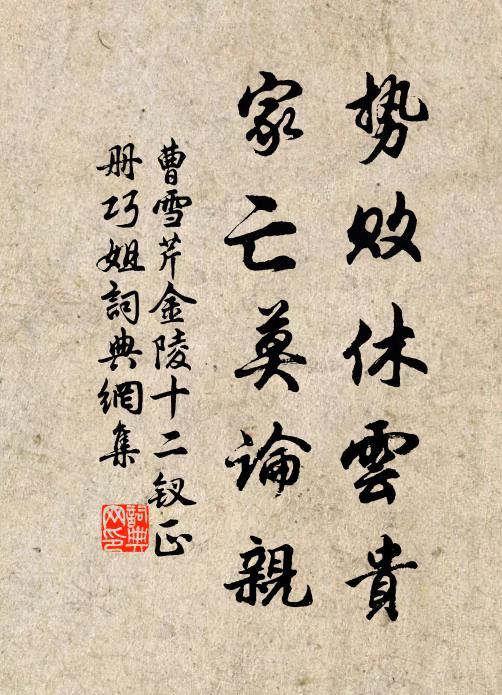 势败休雲貴
家亡莫論親
曹雪芹金陵十二钗正
册巧姐詞典網集
詞典
网印